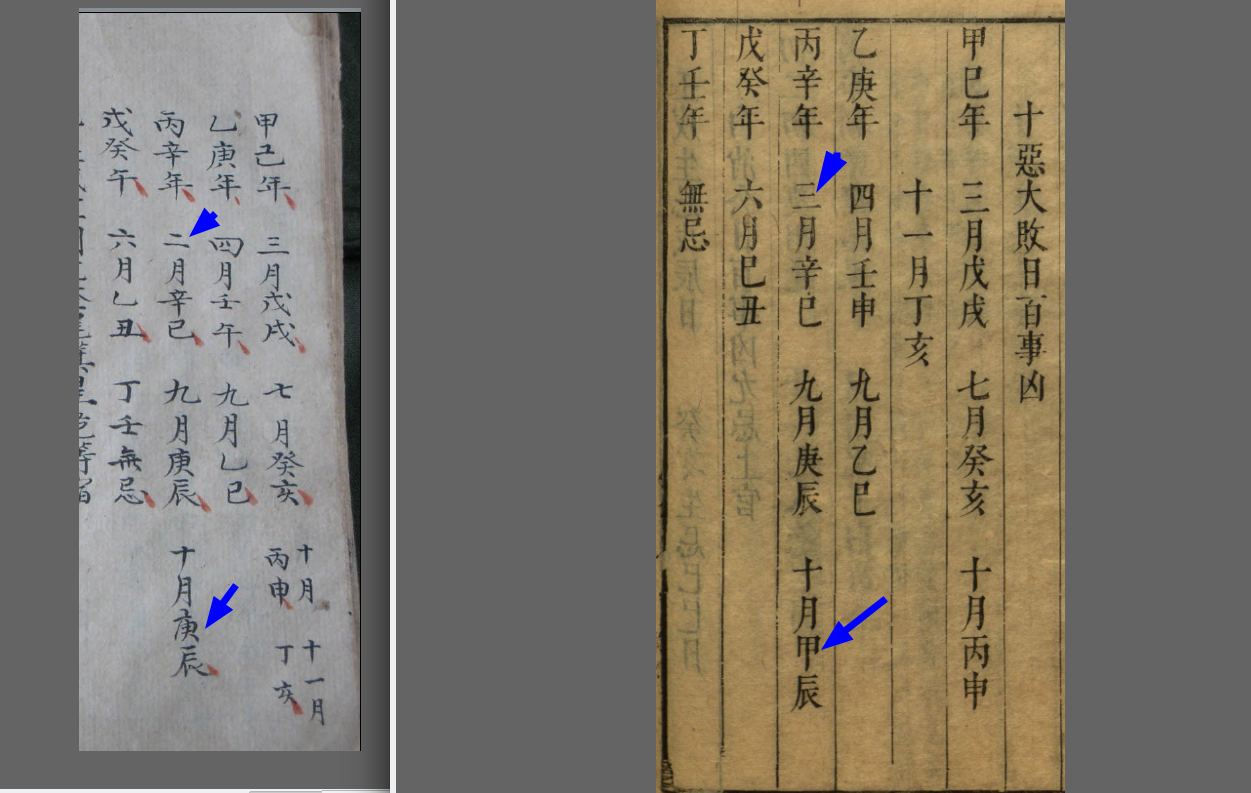 甲己年 三月戊戌 七月癸亥 十月丙申 十一月丁亥
乙庚年 四月壬午 九月乙巳
丙辛年 二月辛巳 九月庚辰 十月庚辰
戊癸午 六月乙丑 丁壬無忌
十惡大敗日百事凶
甲巳年 三月戊戌 七月癸亥 十月丙申
十一月丁亥
乙庚年 四月壬申 九月乙巳
丙辛年 三月辛巳 九月庚辰 十月甲辰
戊癸年 六月巳丑
丁壬年 無忌